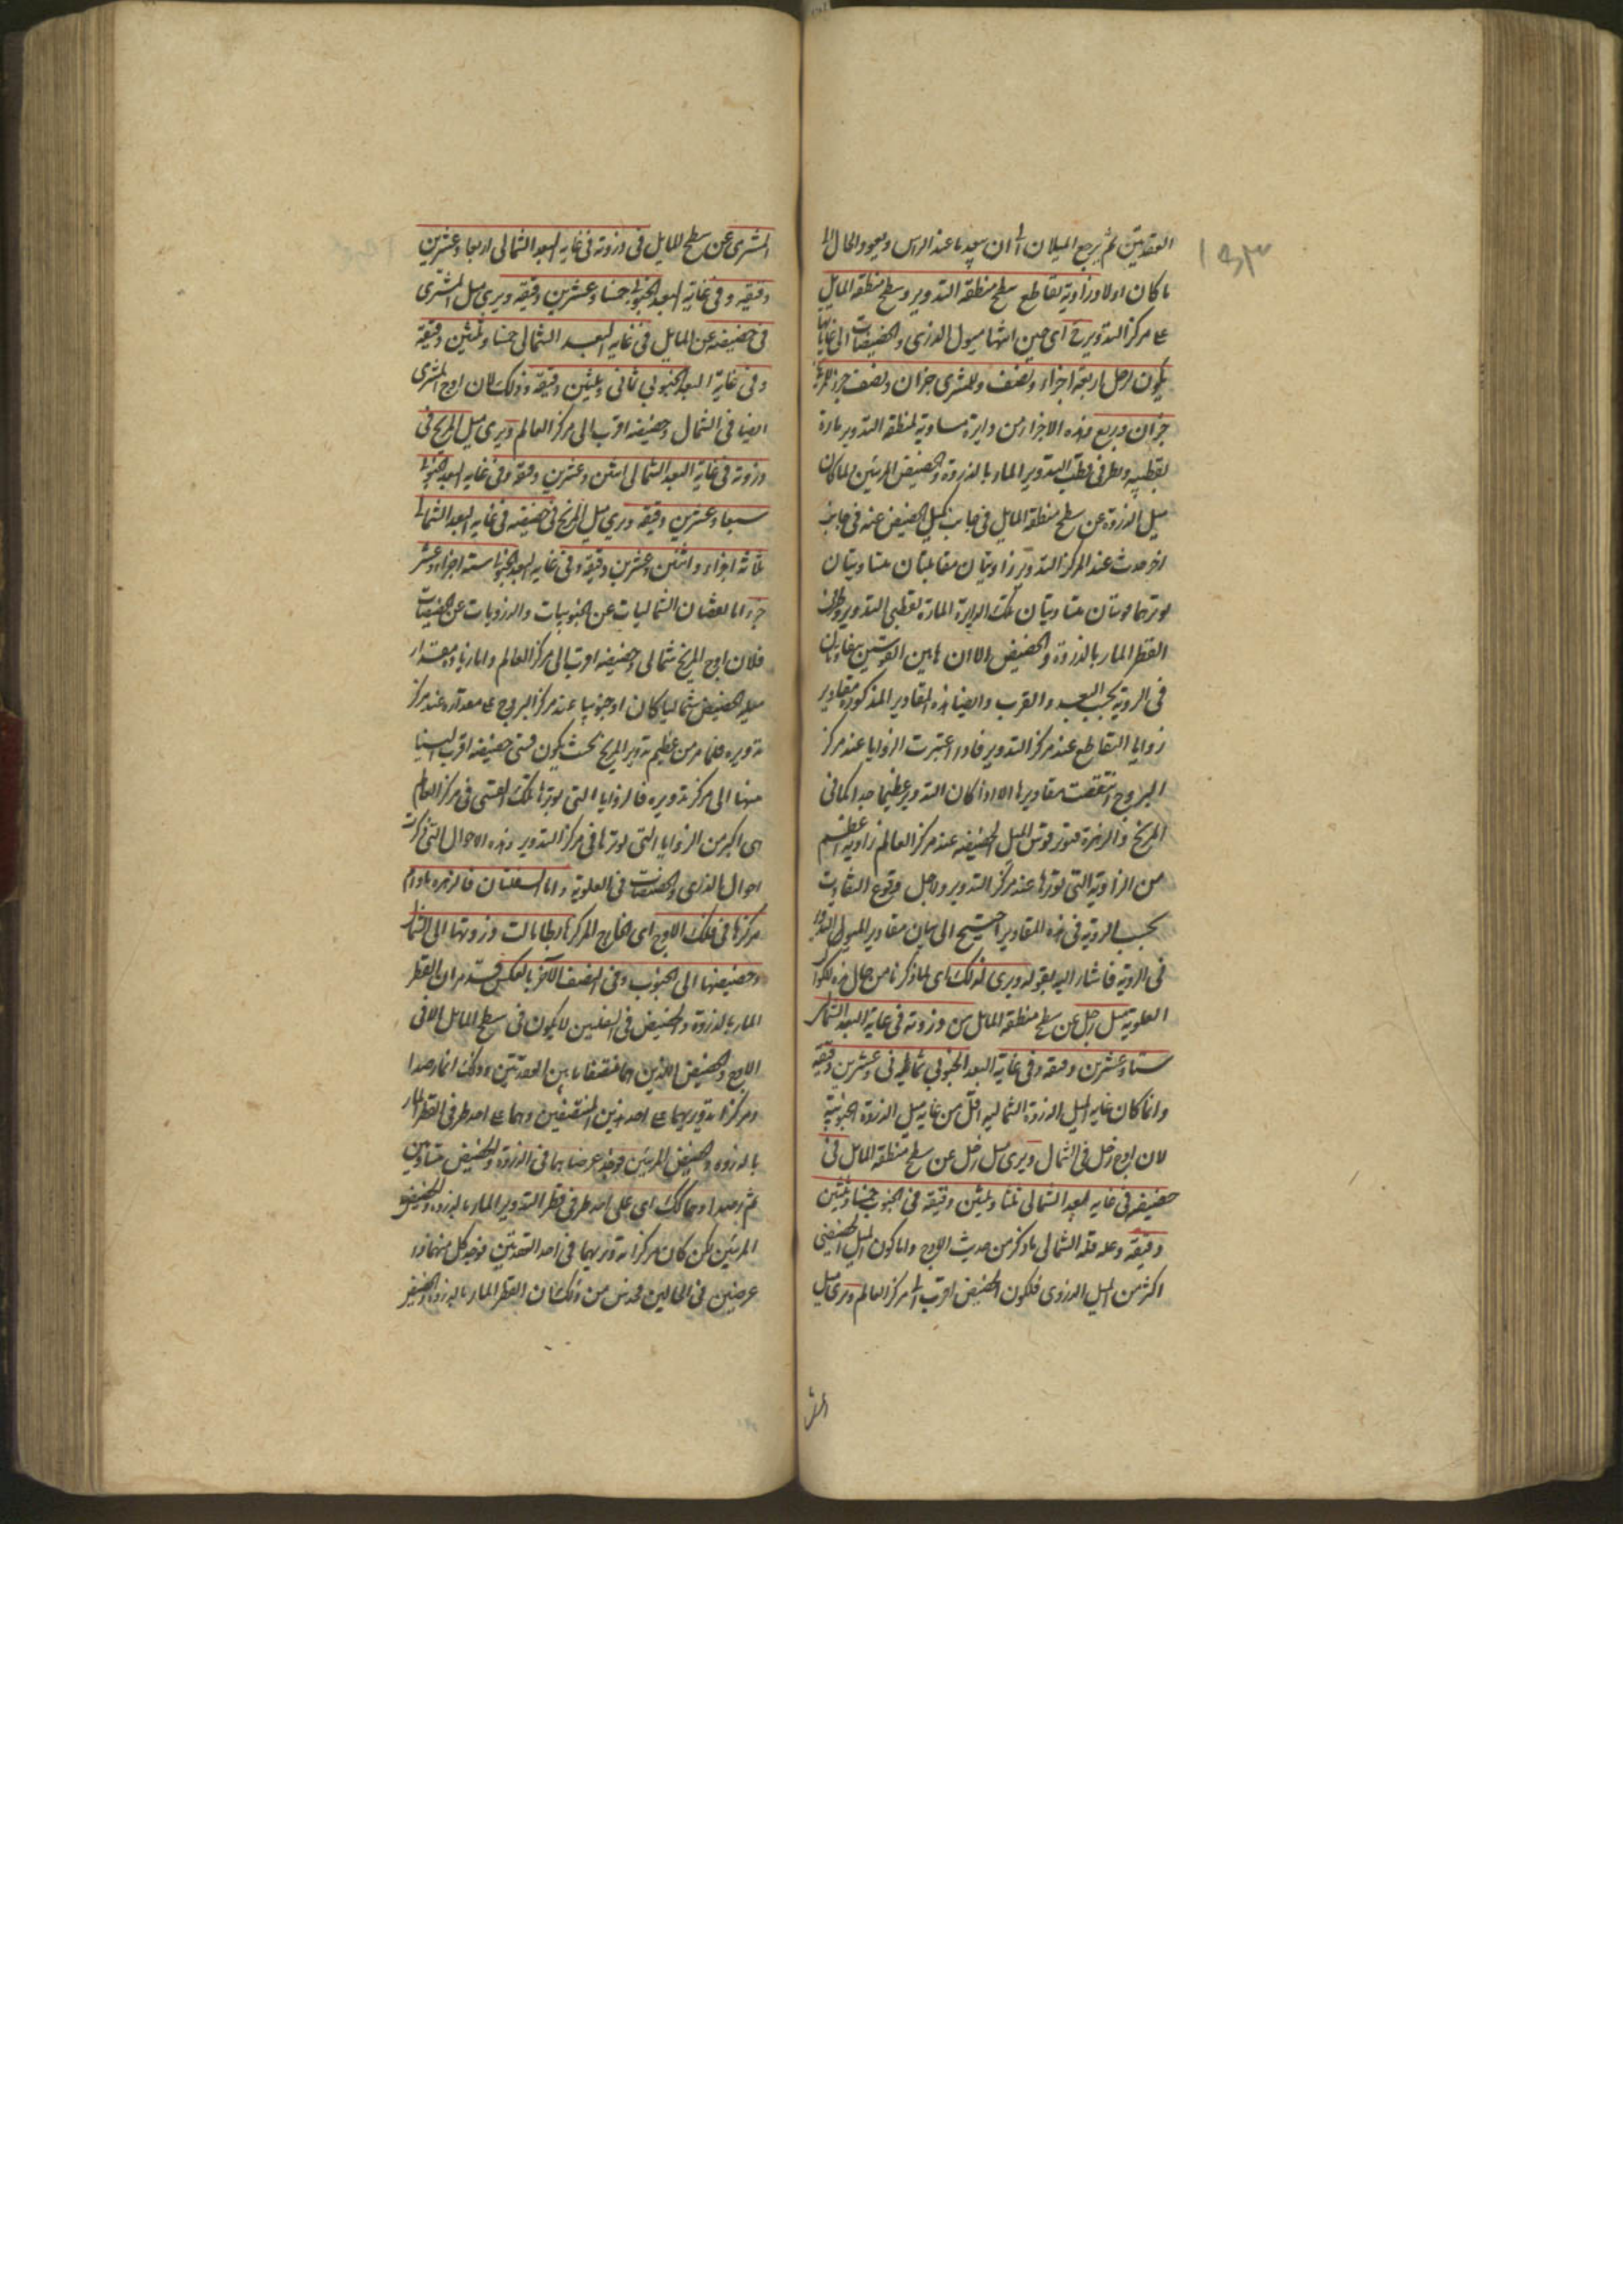 ١٥٣
العقدتين ثم يرجع الميلان الى ان ينعدما عند الراس ويعود الحال الى
ما كان اولا وزاوية تقاطع سطح منطقة التدوير وسطح منطقة المايل
على مركز التدوير ح اى حين انتهاء ميول الذرى والحضيضات الى غاياتها
يكون لزحل اربعة اجزاء ونصف وللمشترى جزان ونصف جزء وللمريخ
جزان وربع وهذه الاجزاء من دايرة مساوية لمنطقة التدوير مارة
بقطبيه وبطرفى قطر التدوير المار بالذروة والحضيض المريين ولما كان
ميل الذروة عن سطح منطقة المايل فى جانب كميل الحضيض عنه فى جانب
اخر حدث عند المركز التدوير زاويتان متقابلتان متساويتان
يوترهما قوسان متساويتان من تلك الدايرة المارة بقطبى التدوير وطرفى
القطر المار بالذروة والحضيض الا ان هاتين القوسين متفاوتتان
فى الروية بحسب البعد والقرب وايضا هذه المقادير المذكورة مقادير
زوايا التقاطع عند مركز التدوير فاذا اعتبرت الزوايا عند مركز
البروج انتقصت مقاديرها الا اذا كان التدوير عظيما جدا كما فى
المريخ والزهرة فتوتر قوس الميل الحضيضيه عند مركز العالم زاوية اعظم
من الزاوية التى توترها عند مركز التدوير ولاجل وقوع التفاوت
بحسب الروية فى هذه المقادير احتيج الى بيان مقادير الميول
فى الروية فاشار اليه بقوله ويرى لذلك اى لما ذكرنا من حال هذه الكواكب
العلوية ميل زحل عن سطح منطقة المايل من ذروته فى غاية البعد الشمالى
ستا وعشرين دقيقة وفى غاية البعد الجنوبى ثمانى وعشرين دقيقة
وانما كان غاية الميل الذروة الشماليه اقل من غاية ميل الذروة الجنوبية
لان اوج زحل فى الشمال ويرى ميل زحل عن سطح منطقة المايل فى
حضيضه فى غاية البعد الشمالى ثلثا وثلثين دقيقة وفى الجنوب خمسا وثلثين
دقيقة وعلة قلة الشمالى ما ذكر من حديث الاوج واما كون الميل الحضيضى
اكثر من الميل الذروى فلكون الحضيض اقرب الى مركز العالم ويرى ميل
المشترى
المشترى عن سطح المايل فى ذروته فى غاية البعد الشمالى اربعا وعشرين
دقيقة وفى غاية البعد الجنوبى خمسا وعشرين دقيقة ويرى ميل المشترى
فى حضيضه عن المايل فى غاية البعد الشمالى خمسا وثلثين دقيقة
وفى غاية البعد الجنوبى ثمانى وثلثين دقيقة وذلك لان اوج المشترى
ايضا فى الشمال وحضيضه اقرب الى مركز العالم ويرى ميل المريخ فى
ذروته فى غاية البعد الشمالى اثنتين وعشرين دقيقة وفى غاية البعد الجنوبى
سبعا وعشرين دقيقة ويرى ميل المريخ فى حضيضه فى غاية البعد الشمالى
ثلاثة اجزاء واثنتين وعشرين دقيقة وفى غاية البعد الجنوبى ستة اجزاء وعشر
جزء اما نقصان الشماليات عن الجنوبيات والذرويات عن الحضيضات
فلان اوج المريخ شمالى وحضيضه اقرب الى مركز العالم واما زيادة مقدار
ميله الحضيضى شماليا كان او جنوبيا عند مركز البروج على مقداره عند مركز
تدويره فلما مر من عظم تدوير المريخ بحيث يكون قسى حضيضه اقرب الينا
منها الى مركز تدويره فالزوايا التى يوترها تلك القسى فى مركز العالم
هى اكبر من الزوايا التى يوترها فى مركز التدوير وهذه الاحوال التى ذكرت
احوال الذرى والحضيضات فى العلوية واما السفليتان فالزهرة مادام
مركزها فى فلك الاوج اى الخارج المركز هابطا مالت ذروتها الى الشمال
وحضيضها الى الجنوب وفى النصف الآخر بالعكس قد مر ان القطر
المار بالذروة والحضيض فى السفليين لا يكون فى سطح المايل الا فى
الاوج والحضيض اللذين هما منتصفا ما بين العقدتين وذلك انما رصدا
ومركزا تدويريهما على احد هذين المنتصفين وهما على احد طرفى القطر المار
بالذروة والحضيض المريين فوجد عرضاهما فى الذروة والحضيض متساويين
ثم رصدا وهما كك اى على احد طرفى قطر التدوير المار بالذروة والحضيض
المريين لكن كان مركزا تدويريهما فى احد العقدتين فوجد كل منهما ذا
عرضين فى الحالين فحدس من ذلك ان القطر المار بالذروة والحضيض